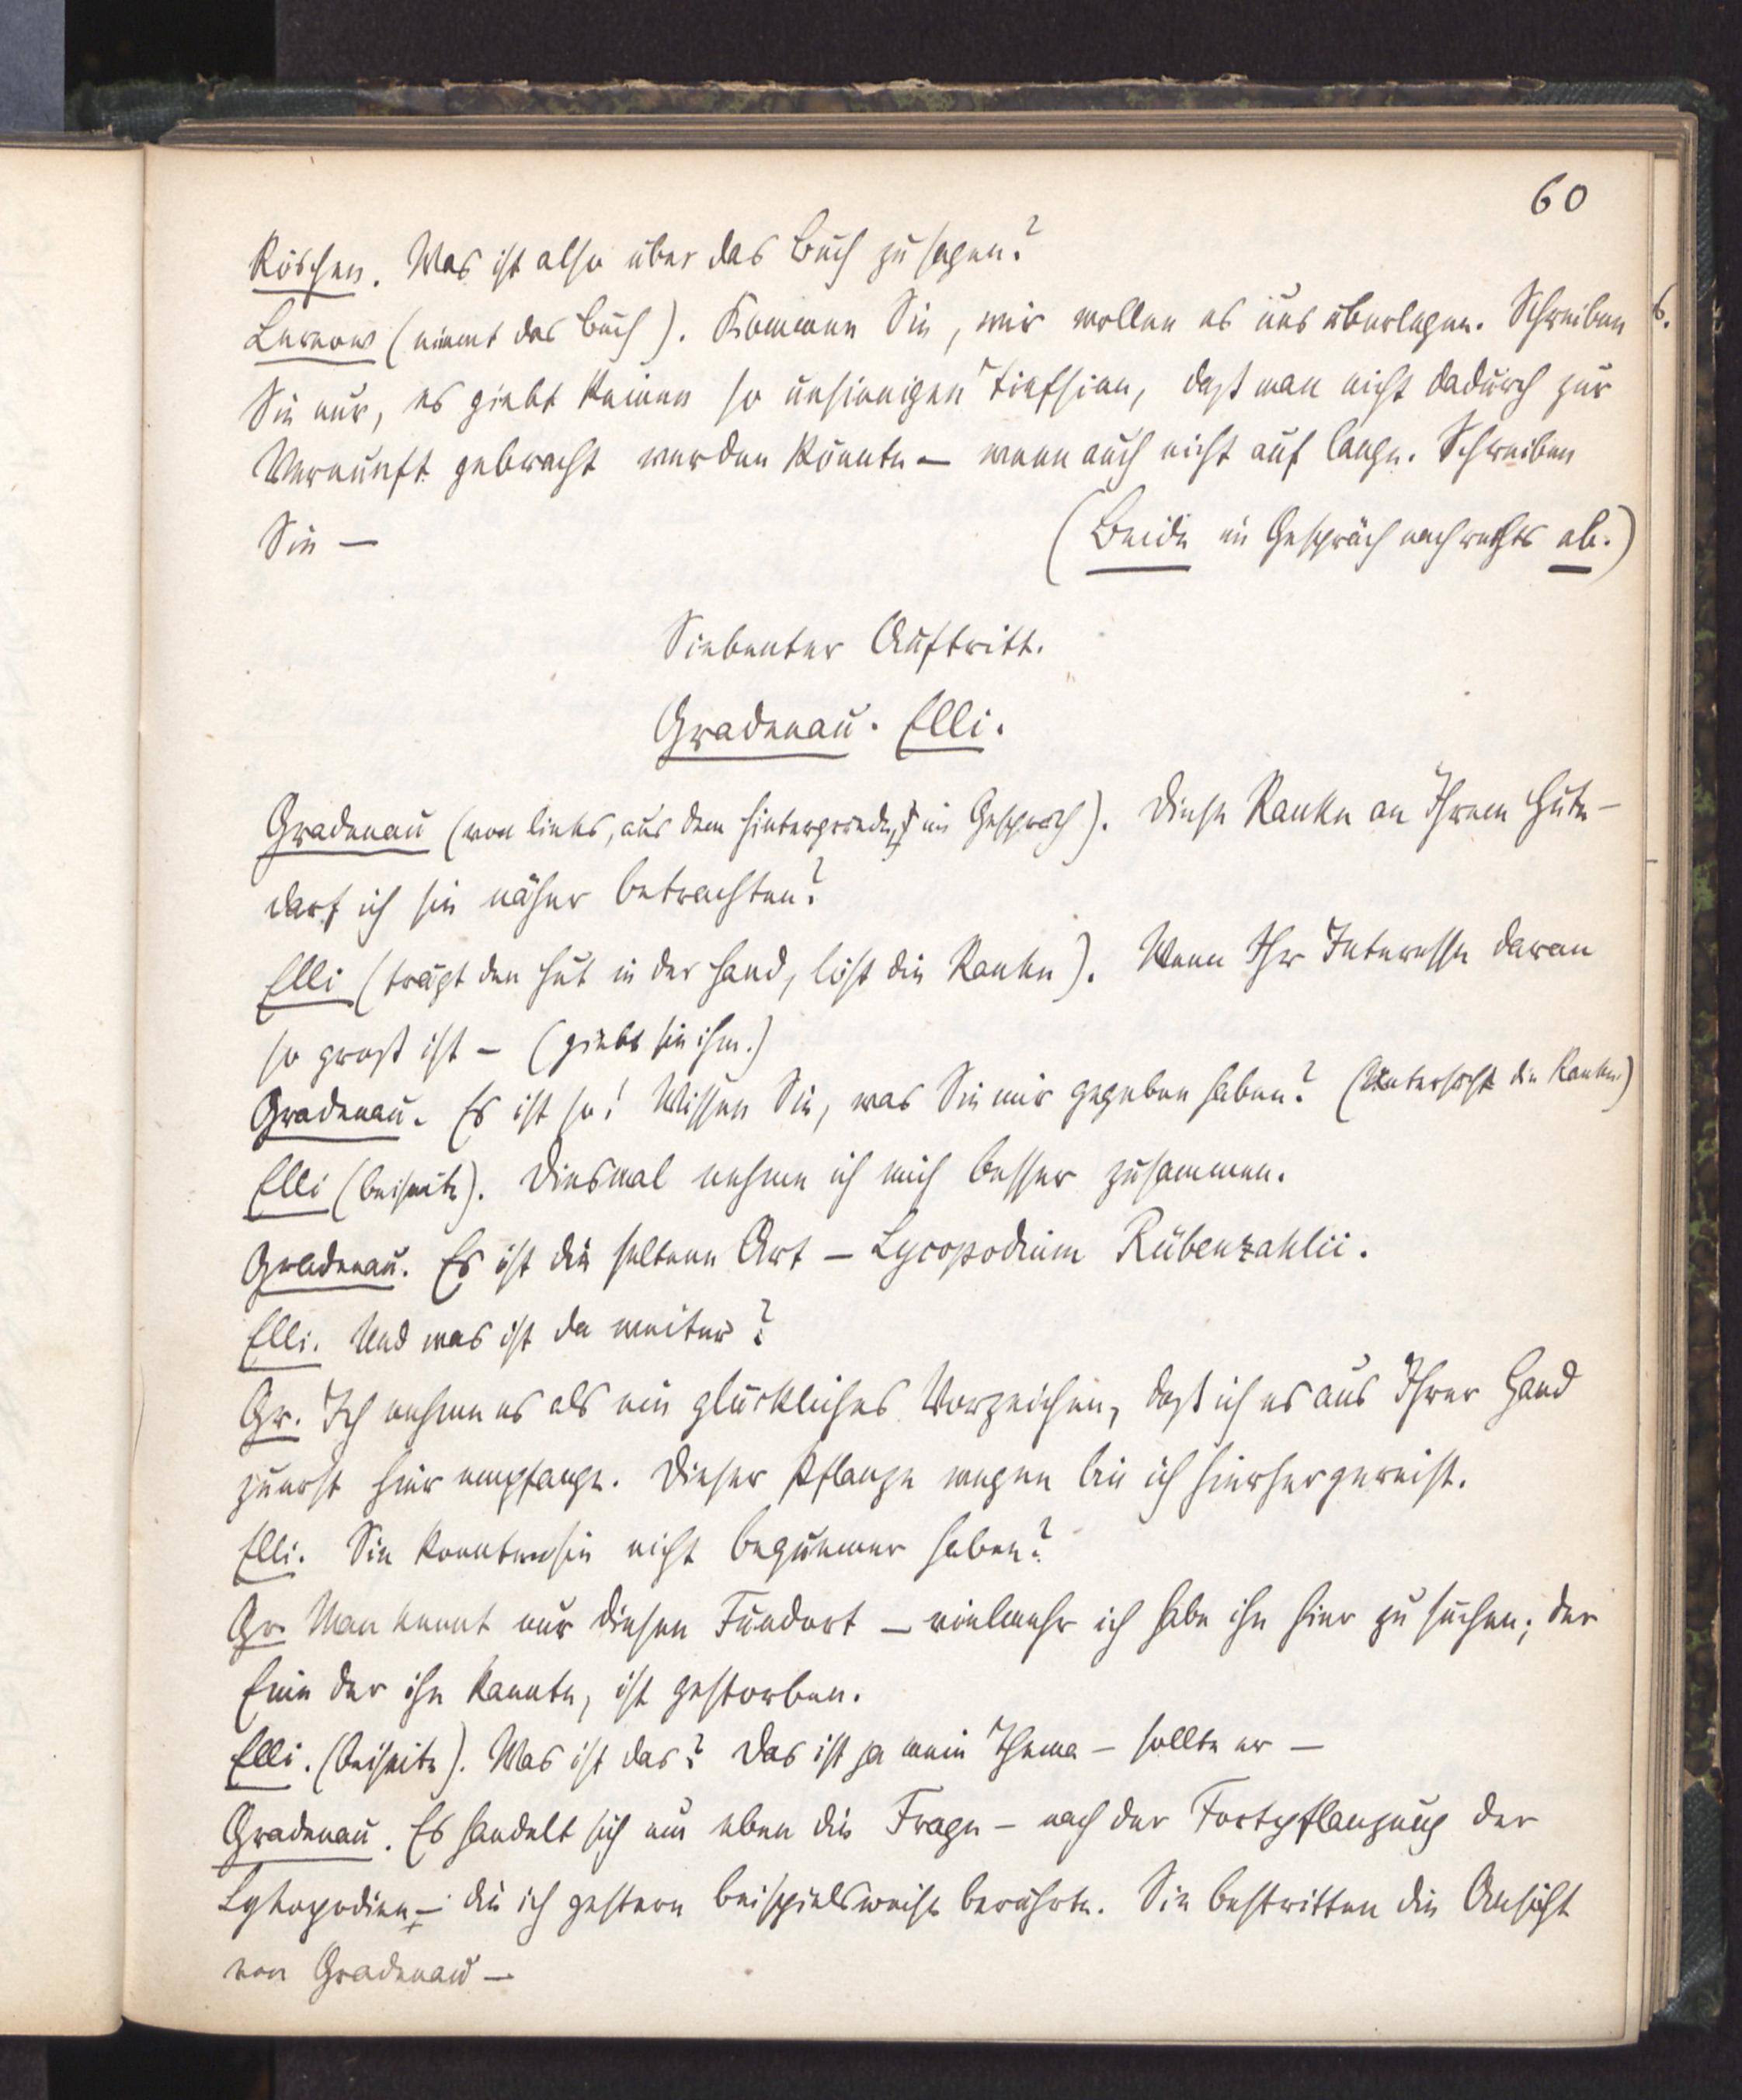 60
Röschen. Was ist also über das Buch zu sagen?
Lernow (nimmt das Buch). Kommen Sie, wir wollen es uns überlegen. Schreiben
Sie nur, es giebt keinen so unsinnigen Tiefsinn, daß man nicht dadurch zur
Vernunft gebracht werden könnte – wenn auch nicht auf lange. Schreiben
Sie –
(Beide im Gespräch nach rechts ab.)
Siebenter Auftritt.
Gradenau. Elli.
Gradenau (von links, aus dem Hintergrunde, im Gespräch). Diese Ranke an Ihrem Hute –
darf ich sie näher betrachten?
Elli (trägt den Hut in der Hand, löst die Ranke). Wenn Ihr Interesse daran
so groß ist – (giebt sie ihm.)
Gradenau. Es ist so! Wissen Sie, was Sie mir gegeben haben? (Untersucht die Ranke.)
Elli (beiseite). Diesmal nehme ich mich besser zusammen.
Gradenau. Es ist die seltene Art – Lycopodium Rübenzahlii.
Elli. Und was ist da weiter?
Gr. Ich nehme es als ein glückliches Vorzeichen, daß ich es aus Ihrer Hand
zuerst hier empfange. Dieser Pflanze wegen bin ich hierhergereist.
Elli. Sie konnten sie nicht bequemer haben?
Gr. Man kennt nur diesen Fundort – vielmehr ich habe ihn hier zu suchen; der
Eine der ihn kannte, ist gestorben.
Elli. (beiseite). Was ist das? Das ist ja mein Thema – sollte er –
Gradenau. Es handelt sich um eben die Frage – nach der Fortpflanzung der
Lykopodien – die ich gestern beispielsweise berührte. Sie bestritten die Ansicht
von Gradenau –